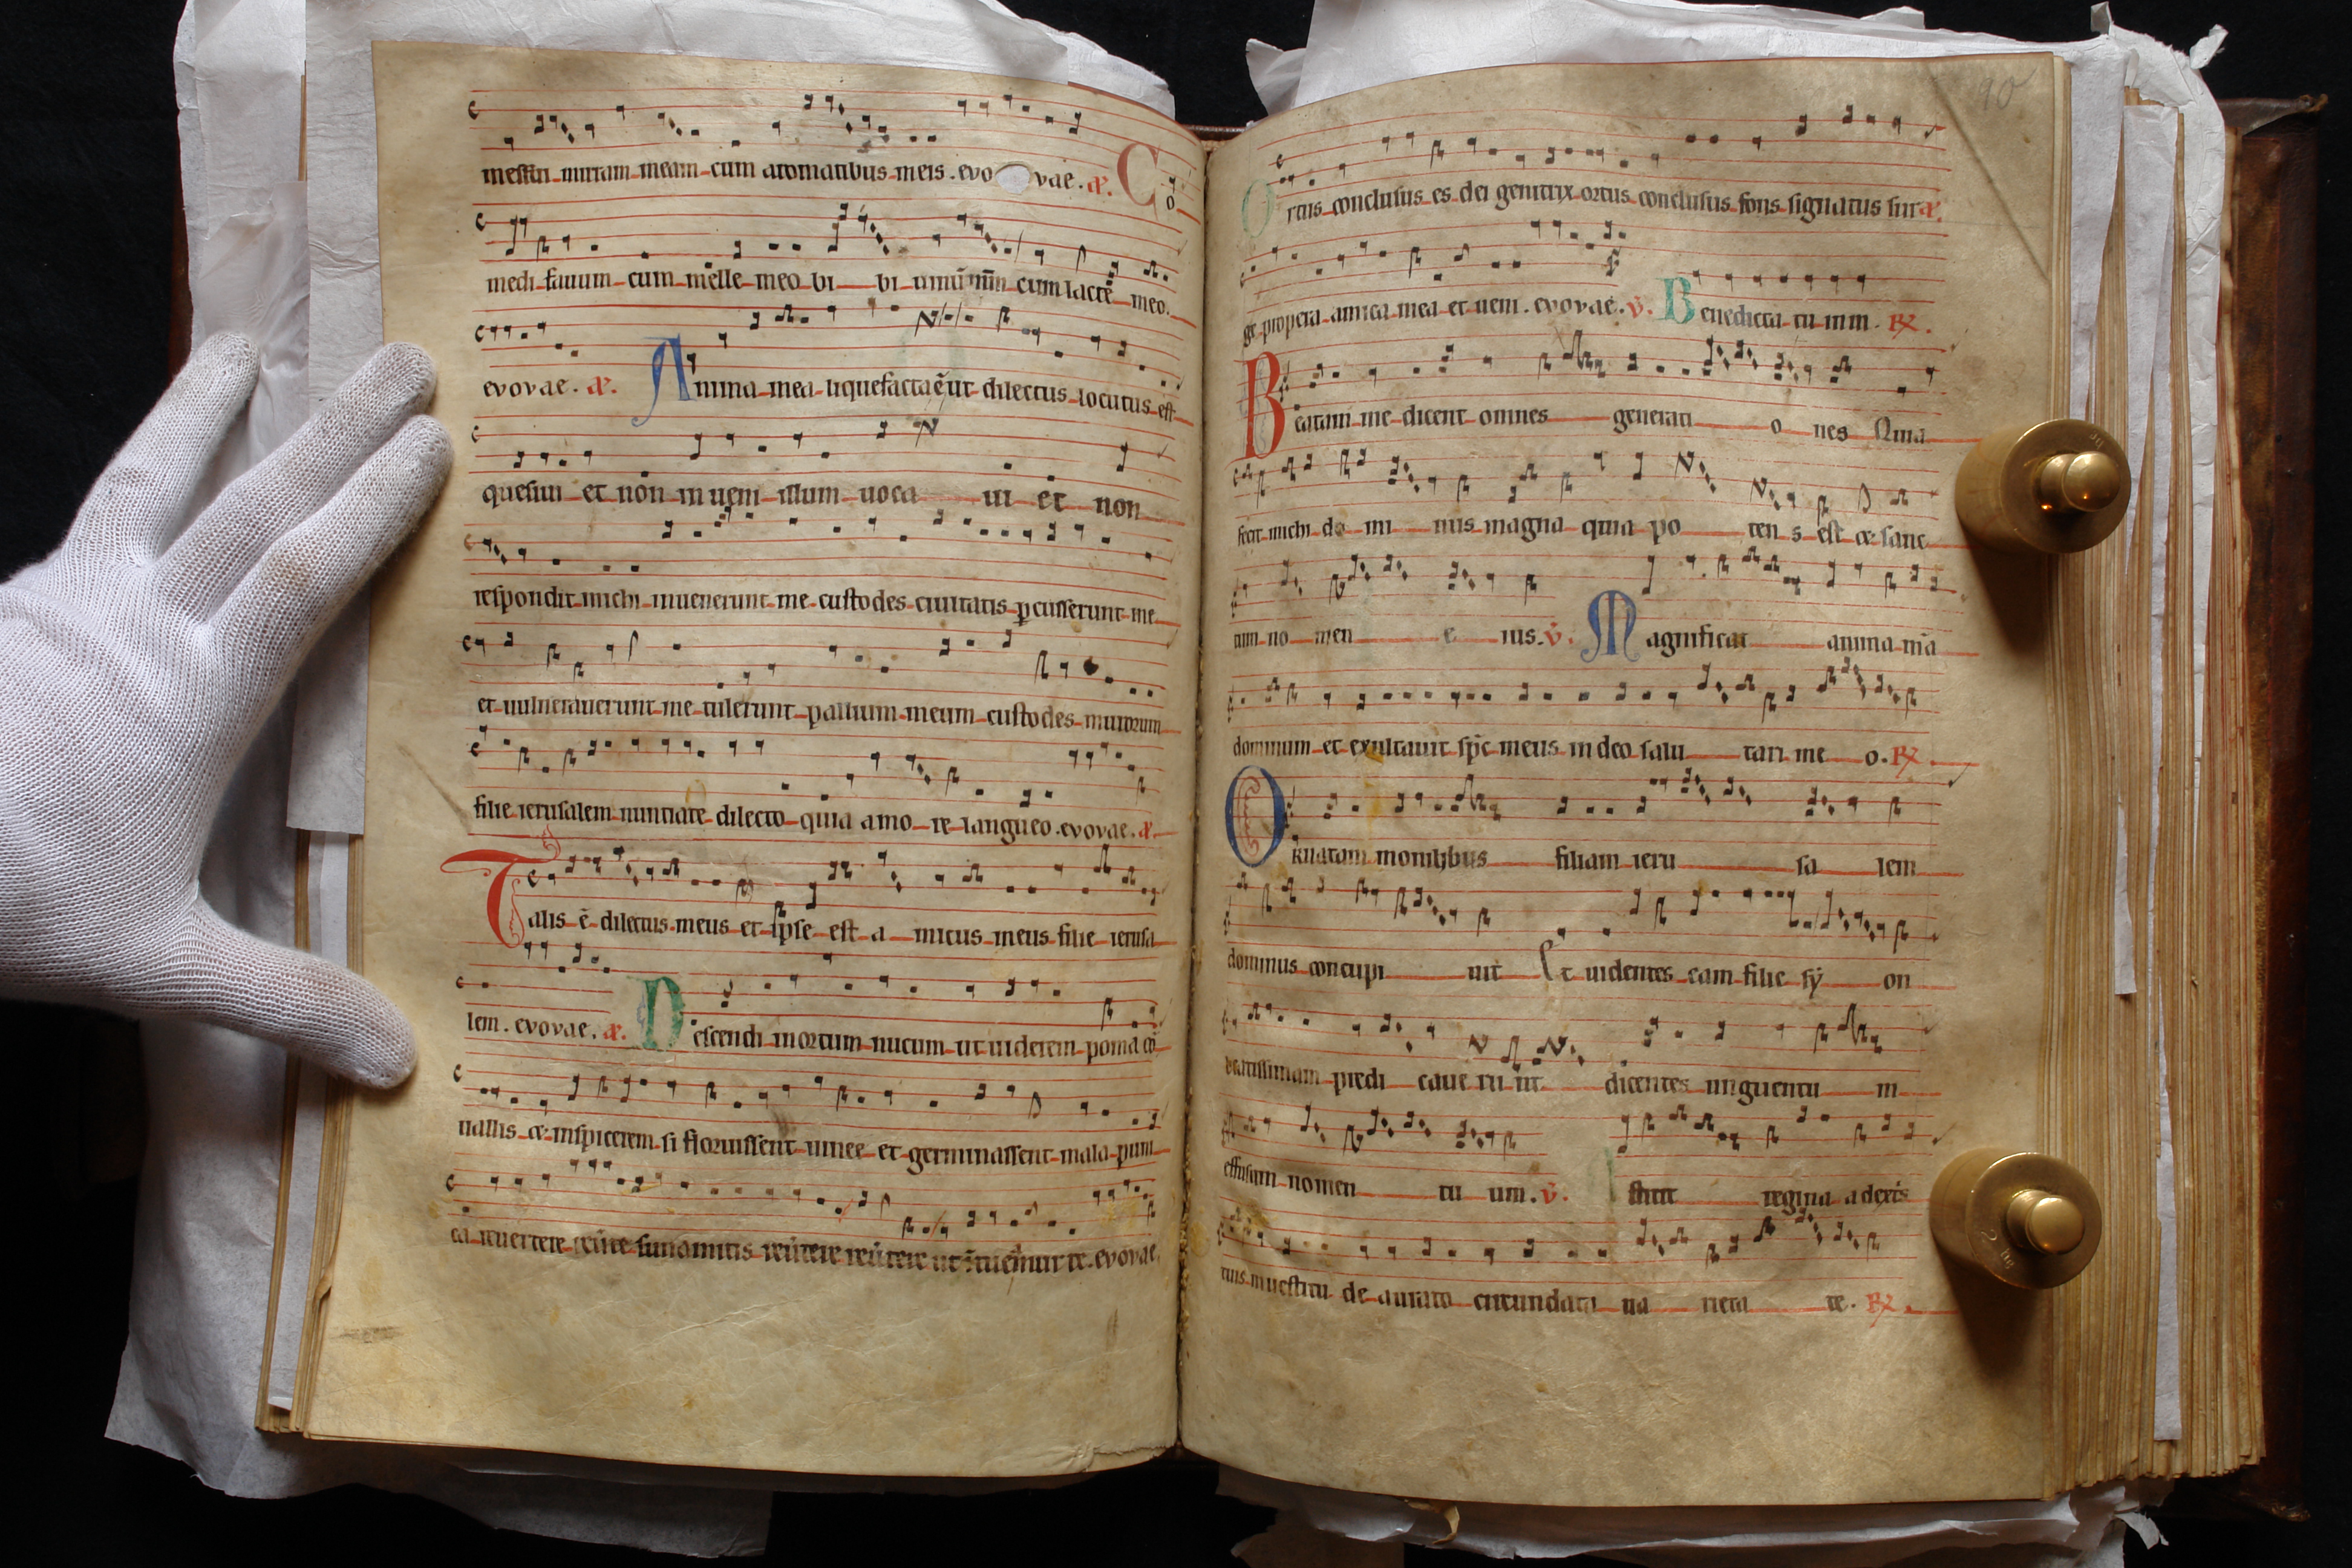 messui mirram meam cum aromatibus meis. evovae. æ. Co
medi fauum cum melle meo bi bi uinū mm̄ cum lacte meo.
evovae. æ. Anima mea liquefacta ē ut dilectus locutus est
quesiui et non inueni illum uoca ui et non
respondit michi inuenerunt me custodes ciuitatis pcusserunt me
et uulnerauerunt me tulerunt pallium meum custodes murorum
filie ierusalem nuntiate dilecto quia amo re langueo. evovae. æ.
Talis ē dilectus meus et ipse est a micus meus filie ierusa
lem. evovae. æ. Descendi in ortum nucum ut uiderem poma cō
uallis et inspicerem si floruissent uinee et germinassent mala puni
ca reuertere sunamitis te. evovae.
90
Ortus conclusus es dei genitrix ortus conclusus fons signatus sur æ.
ge propera amica mea et ueni. evovae. v̄. Benedicta tu in m. R.
Beatam me dicent omnes generati o nes Quia
fecit michi do mi nus magna quia po ten s est et sanc
tum no men e ius. v̄. Magnificat anima m̄a
dominum et exultauit sp̄c meus in deo salu tari me o. R.
Ornatam monilibus filiam ieru sa lem
dominus concupi uit Et uidentes eam filie sy on
beatissimam predi caue ru nt dicentes unguentu m
effusum nomen tu um. v̄. Astitit regina a dextris
tuis in uestitu de aurato circundata ua rieta te. R.